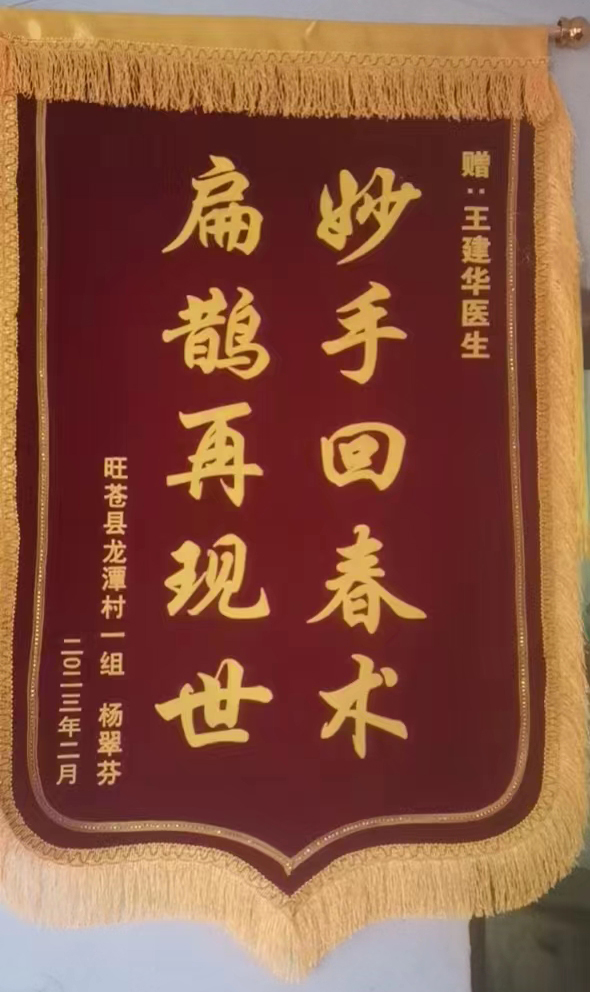 赠：王建华医生
妙手回春术
扁鹊再现世
旺苍县龙潭村一组 杨翠芬
二〇二三年二月